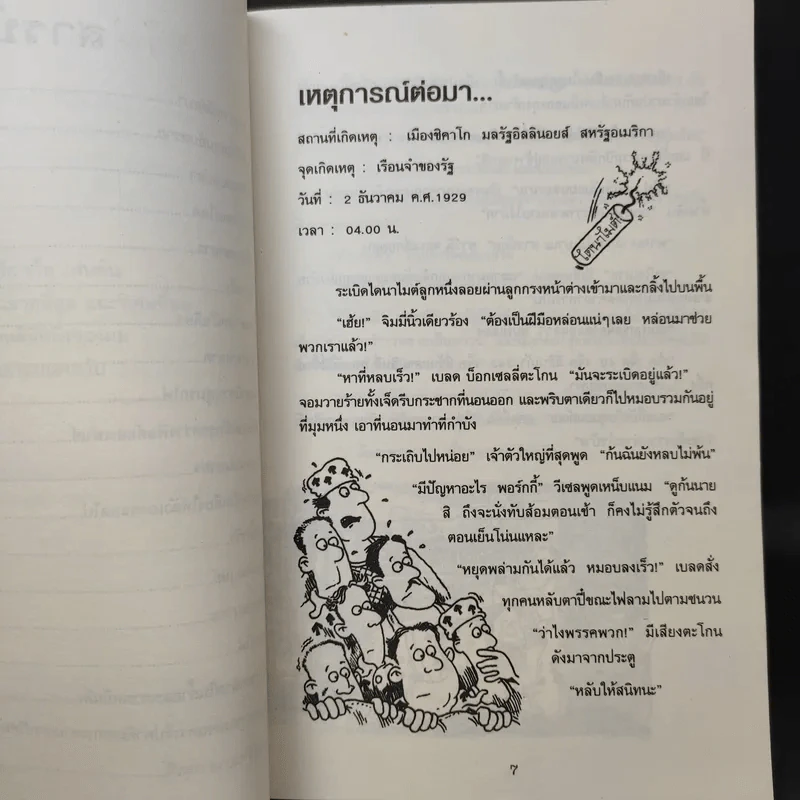 เหตุการณ์ต่อมา...
สถานที่เกิดเหตุ : เมืองชิคาโก มลรัฐอิลลินอยส์ สหรัฐอเมริกา
จุดเกิดเหตุ : เรือนจำของรัฐ
วันที่ : 2 ธันวาคม ค.ศ.1929
เวลา : 04.00 น.
ไดนาไมต์
ระเบิดไดนาไมต์ลูกหนึ่งลอยผ่านลูกกรงหน้าต่างเข้ามาและกลิ้งไปบนพื้น
“เฮ้ย!” จิมมี่นิ้วเดียวร้อง “ต้องเป็นฝีมือหล่อนแน่ๆเลย หล่อนมาช่วย
พวกเราแล้ว!”
“หาที่หลบเร็ว!” เบลด บ็อกเซลลี่ตะโกน “มันจะระเบิดอยู่แล้ว!”
จอมวายร้ายทั้งเจ็ดรีบกระชากที่นอนออก และพริบตาเดียวก็ไปหมอบรวมกันอยู่
ที่มุมหนึ่ง เอาที่นอนมาทำที่กำบัง
“กระเถิบไปหน่อย” เจ้าตัวใหญ่ที่สุดพูด “ก้นฉันยังหลบไม่พ้น”
“มีปัญหาอะไร พอร์กกี้” วีเซลพูดเหน็บแนม “ดูก้นนาย
สิ ถึงจะนั่งทับส้อมตอนเช้า ก็คงไม่รู้สึกตัวจนถึง
ตอนเย็นโน่นแหละ”
“หยุดพล่ามกันได้แล้ว หมอบลงเร็ว!” เบลดสั่ง
ทุกคนหลับตาปี๋ขณะไฟลามไปตามชนวน
“ว่าไงพรรคพวก!” มีเสียงตะโกน
ดังมาจากประตู
“หลับให้สนิทนะ”
7